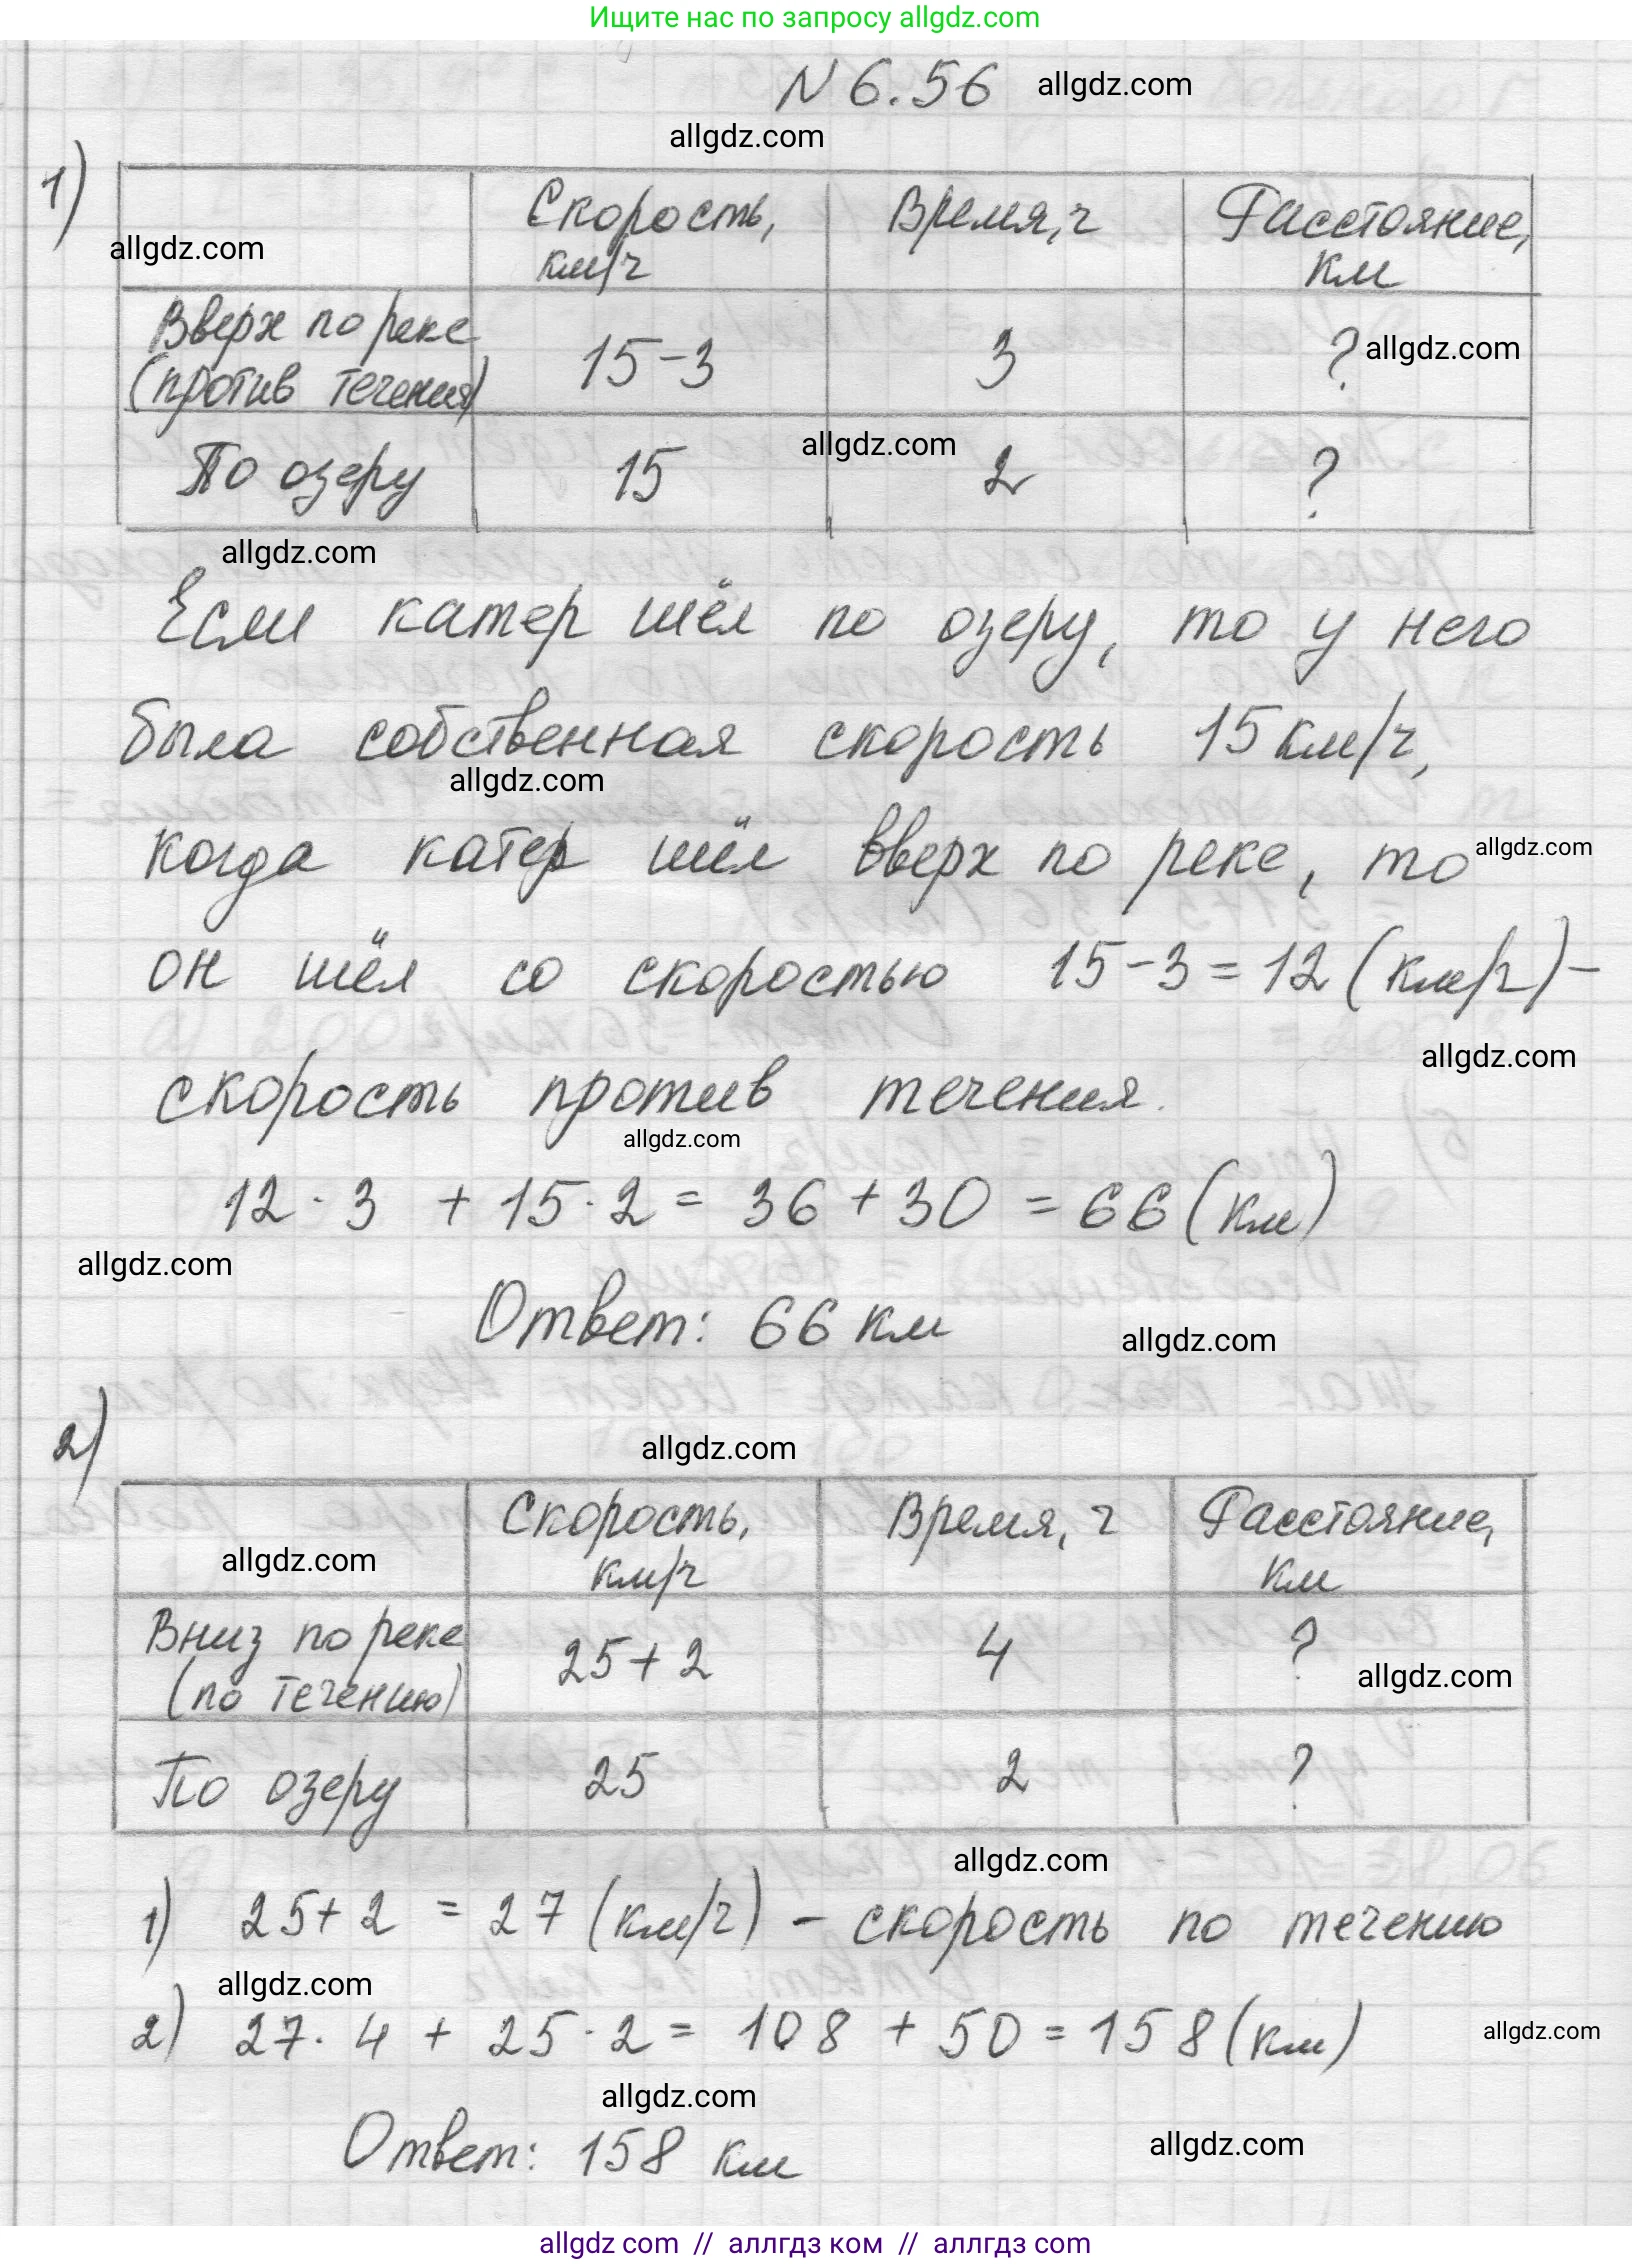 Ищите нас по запросу allgdz.com
N 6.56 allgdz.com
allgdz.com
1)
Скорость, км/ч Время, ч Расстояние, км
allgdz.com
Вверх по реке (против течения) 15-3 3 ? allgdz.com
allgdz.com
По озеру 15 2 ?
allgdz.com
Если катер шёл по озеру, то у него
была собственная скорость 15 км/ч,
allgdz.com
когда катер шёл вверх по реке, то allgdz.com
он шёл со скоростью 15-3=12 (км/ч)-
allgdz.com
скорость против течения.
allgdz.com
12·3 + 15·2 = 36 + 30 = 66 (км)
allgdz.com
Ответ: 66 км allgdz.com
2)
allgdz.com
Скорость, км/ч Время, ч Расстояние, км
allgdz.com
Вниз по реке (по течению) 25+2 4 ? allgdz.com
По озеру 25 2 ?
allgdz.com
1) 25+2 = 27 (км/ч) - скорость по течению
allgdz.com
2) 27·4 + 25·2 = 108 + 50 = 158 (км) allgdz.com
allgdz.com
Ответ: 158 км allgdz.com
allgdz com // аллгдз ком // аллгдз com